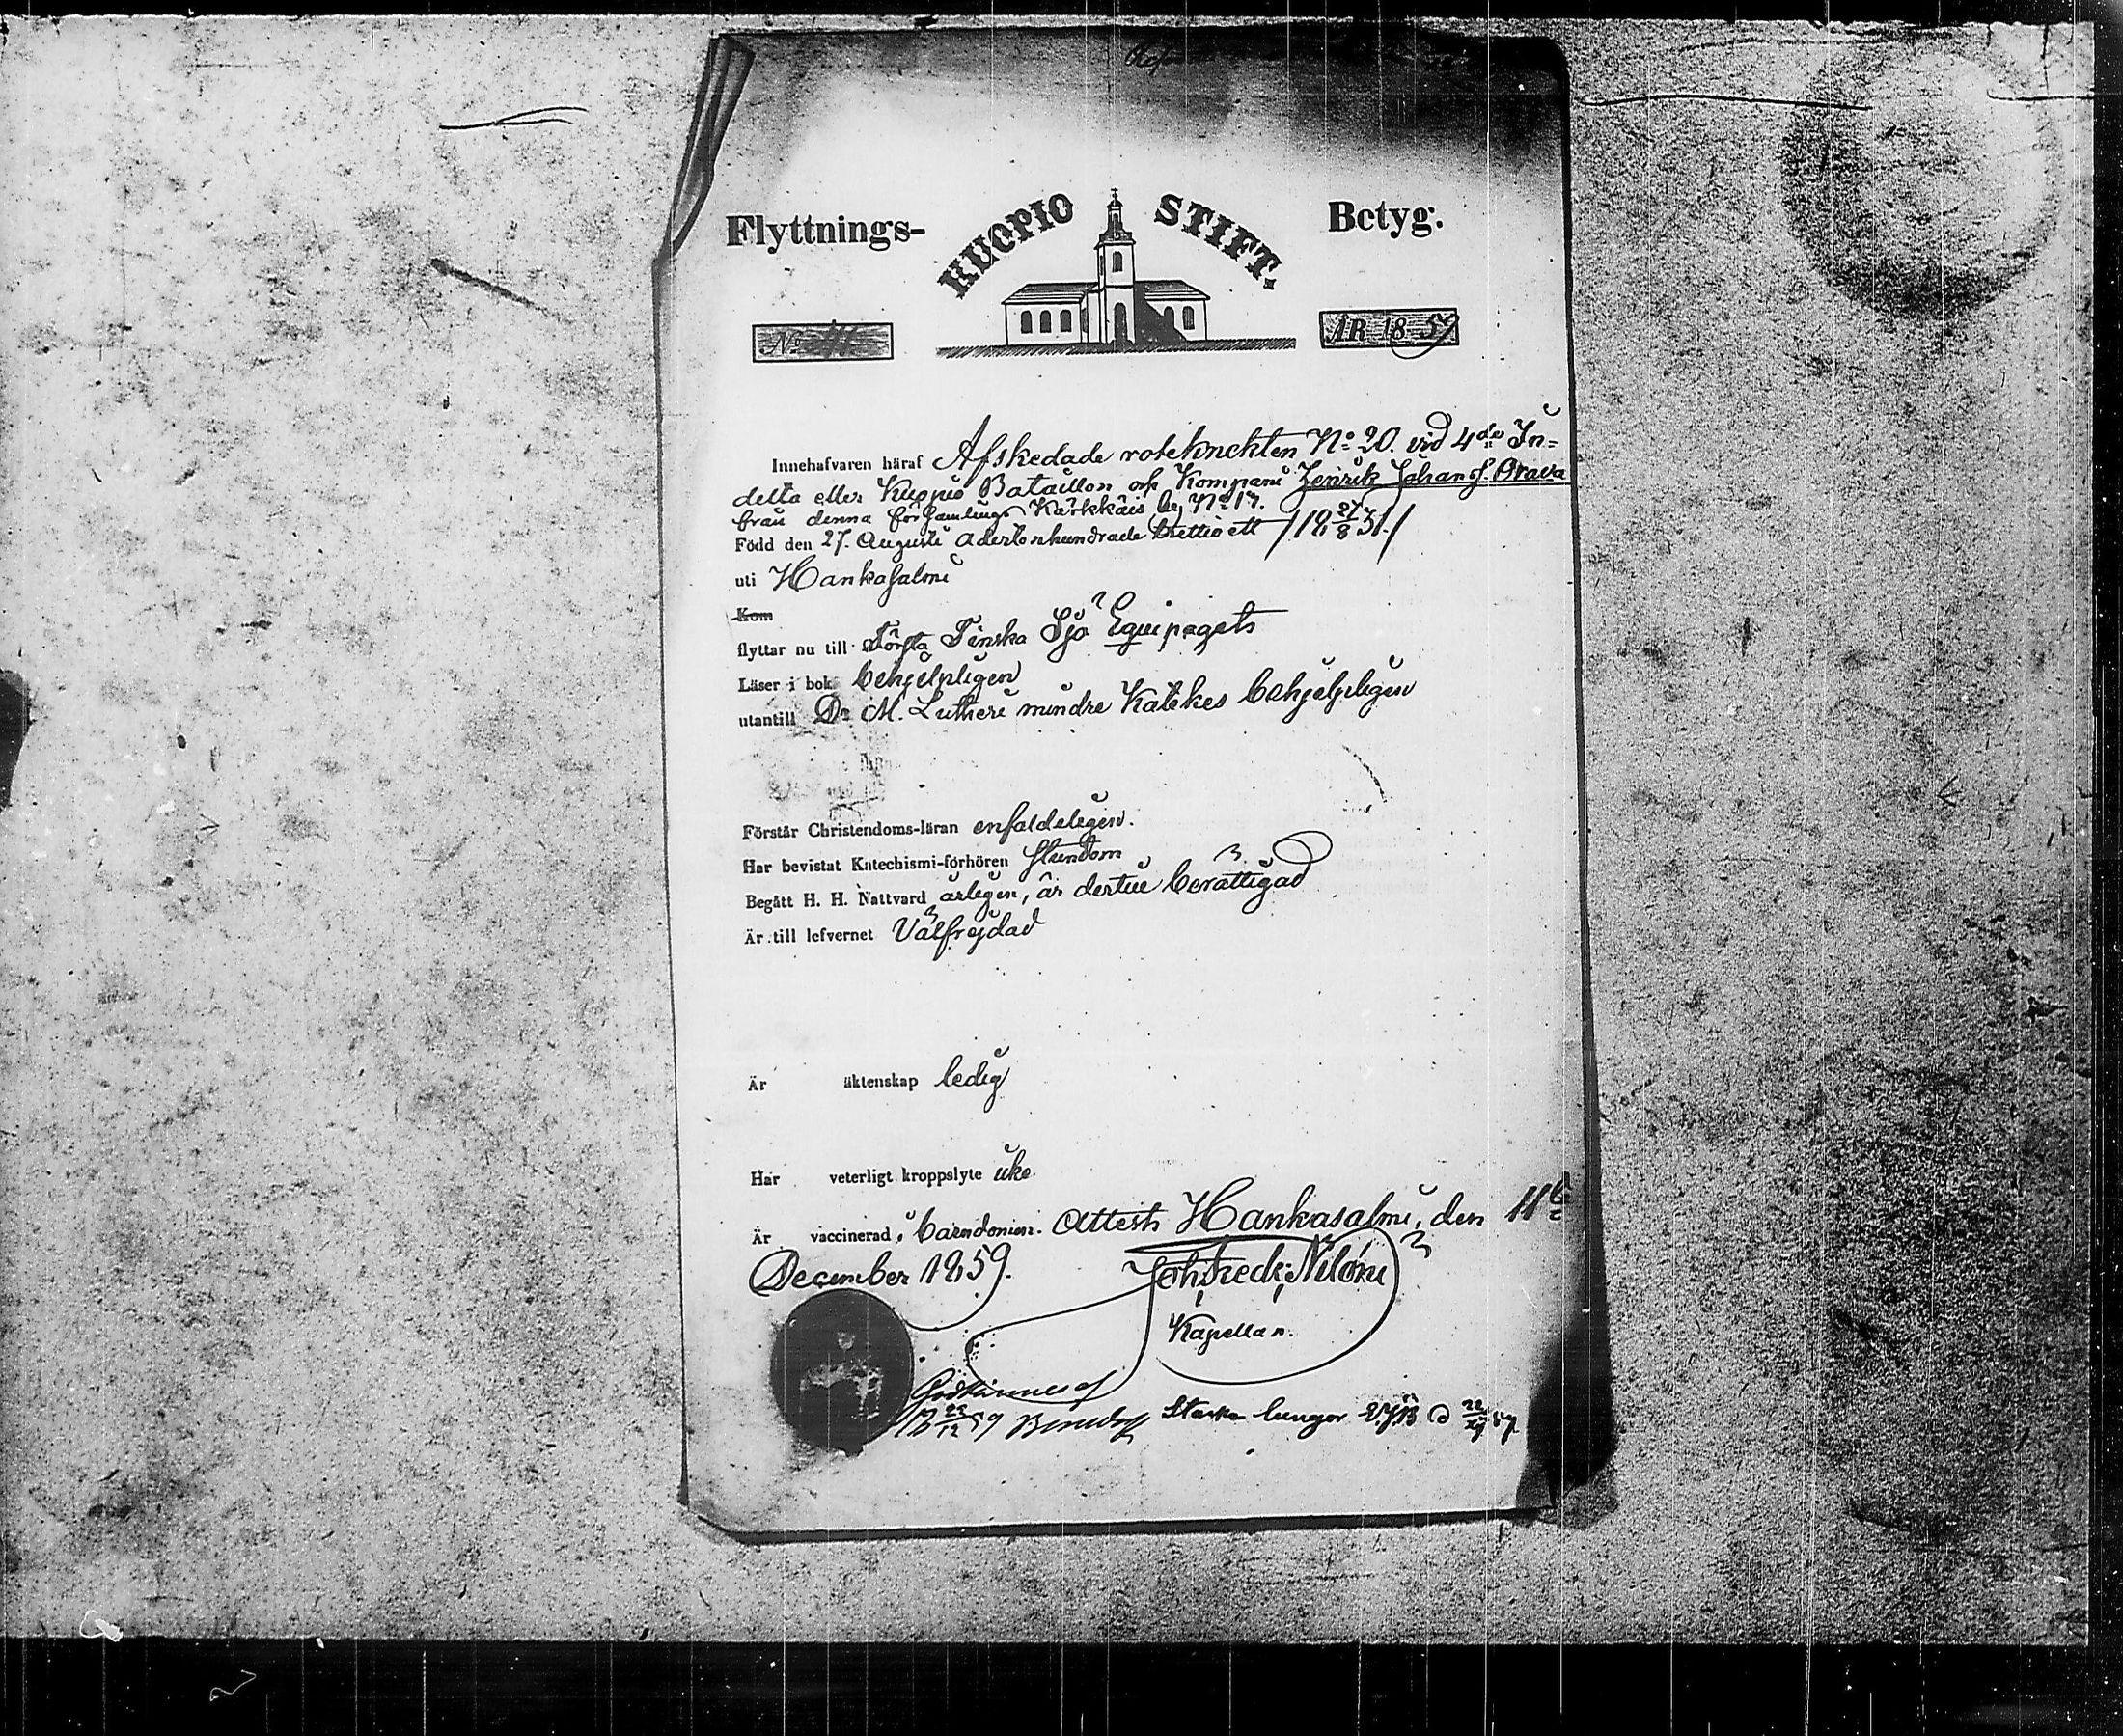 Flyttnings- KUOPIO STIFT. Betyg.
No 41 ÅR 1859
Innehafvaren häraf Afskedade roteknekten No 20. vid 4de In-
delta eller Kuopio Bataillon och Kompani Henrik Johansf. Orava
från denna församlings Kärkkäis by No 17.
Född den 27. Augusti adertonhundrade trettio ett /18 27/8 31./
uti Hankasalmi
Kom
flyttar nu till Första Finska Sjö Equipaget
Läser i bok behjelpligen
utantill Dr M. Lutheri mindre Katekes behjelpligen
Förstår Christendoms-läran enfaldeligen.
Har bevistat Katechismi-förhören stundom
Begått H. H. Nattvard årligen, är dertill berättigad
Är till lefvernet Välfrejdad
Är äktenskap ledig
Har veterligt kroppslyte icke
Är vaccinerad i barndomen. Attest. Hankasalmi, den 11te
December 1859.
Joh. Fredr. Nilóni
Kapellan.
Godkännes af
18 22/12 59 Starka lungor